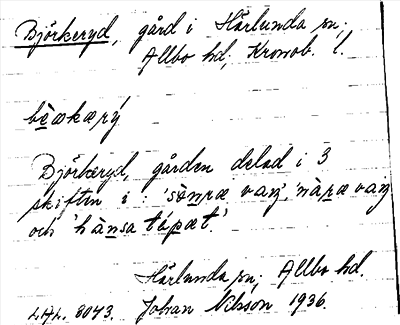 Björkeryd, gård i Härlunda sn;
Allbo hd; Kronob. l.
bèwkærý
Björkeryd, gården delad i 3
skiften i: 'sònræ vaŋ', 'nàræ vaŋ
och 'hànsa tápæt.'
Härlunda sn; Allbo hd.
LAL. 8043. Johan Nilsson 1936.